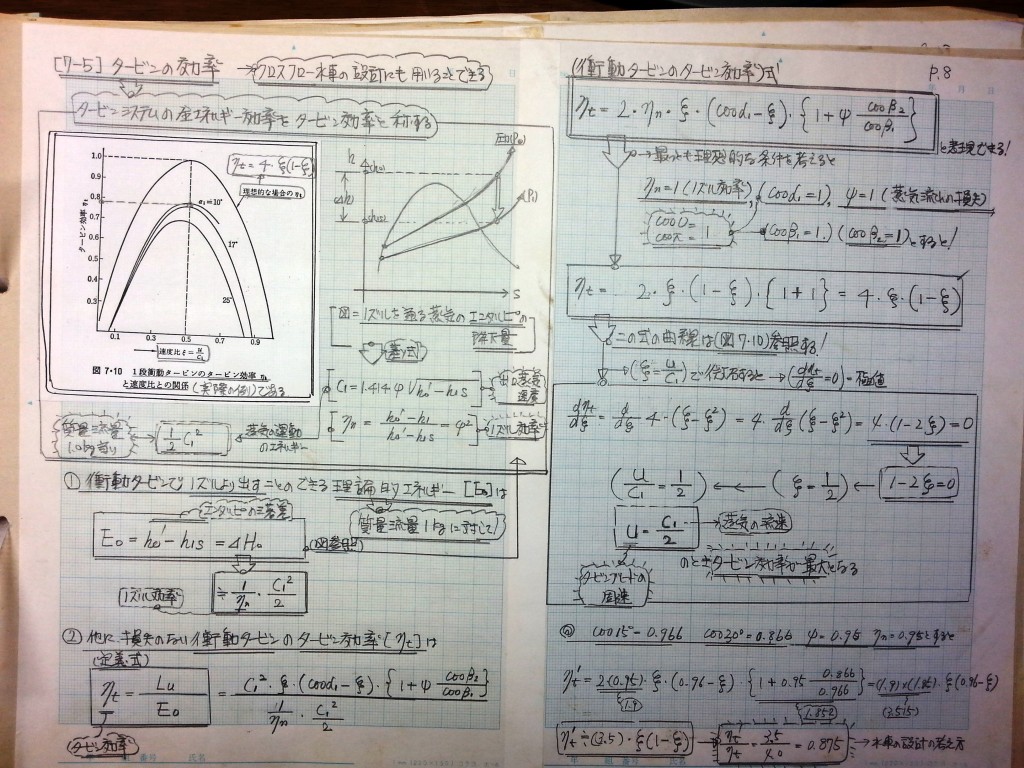 [7-5] タービンの効率 → クロスフロー水車の設計にも用いることできる
タービンシステムの全エネルギー効率をタービン効率と称する
ηt = 4・ξ(1-ξ)
理想的な場合の ηt
α1=10°
17°
25°
タービン効率 ηt
1.0
0.9
0.8
0.7
0.6
0.5
0.4
0.3
0.1 0.3 0.5 0.7 0.9
速度比 ξ = u/C1
図 7・10 1段衝動タービンのタービン効率 ηt
と速度比との関係 (実際の例)である
h
Δh
S
(P1)
図=ノズルを通る蒸気のエンタルピの
降下量
蒸気
C1 = 1.414 φ √h0'-h1s
出口蒸気
速度
ηn = h0'-h1 / h0'-h1s = φ²
ノズル効率
質量流量
1.0kg当り
1/2 C1²
蒸気の運動
のエネルギー
① 衝動タービンでノズルより出すことのできる理論的エネルギー [E0] は
エンタルピの落差
質量流量 1kg に対して
E0 = h0'-h1s = ΔH0
(図参照)
ノズル効率
≒ 1/ηn・C1²/2
② 他に損失のない衝動タービンのタービン効率 [ηt] は
(定義式)
ηt = Lu/E0 = C1²・ξ・(cosα1-ξ)・{1+ψ cosβ2/cosβ1} / 1/ηn・C1²/2
タービン効率
P.8
(衝動タービンのタービン効率)式
ηt = 2・ηn・ξ・(cosα1-ξ)・{1+ψ cosβ2/cosβ1}
と表現できる!
最も理想的な条件を考えると
ηn=1 (ノズル効率), (cosα1=1), ψ=1 (蒸気流れの損失)
cos0=
cosπ= 1
(cosβ1=1.) (cosβ2=1) とすると!
ηt = 2・ξ・(1-ξ)・{1+1} = 4・ξ・(1-ξ)
この式の曲線は(図7・10)参照する!
(ξ=U/C1)で微分すると → (dηt/dξ=0)=極値
dηt/dξ = d/dξ 4・(ξ-ξ²) = 4・d/dξ(ξ-ξ²) = 4・(1-2ξ)=0
(U/C1=1/2) ← (ξ=1/2) ← 1-2ξ=0
U = C1/2 → 蒸気の流速
のときタービン効率が最大となる
タービンブレードの
周速
cos15°=0.966 cos30°=0.866 ψ=0.95 ηn=0.95とすると
ηt' = 2(0.95)・ξ・(0.96-ξ)・{1+0.95 0.866/0.966} = (1.9)×(1.85)・ξ(0.96-ξ)
1.9
1.852
(3.515)
ηt' ≒ (3.5)・ξ(1-ξ) → ηt'/ηt = 3.5/4.0 = 0.875 → 水車の設計の考え方